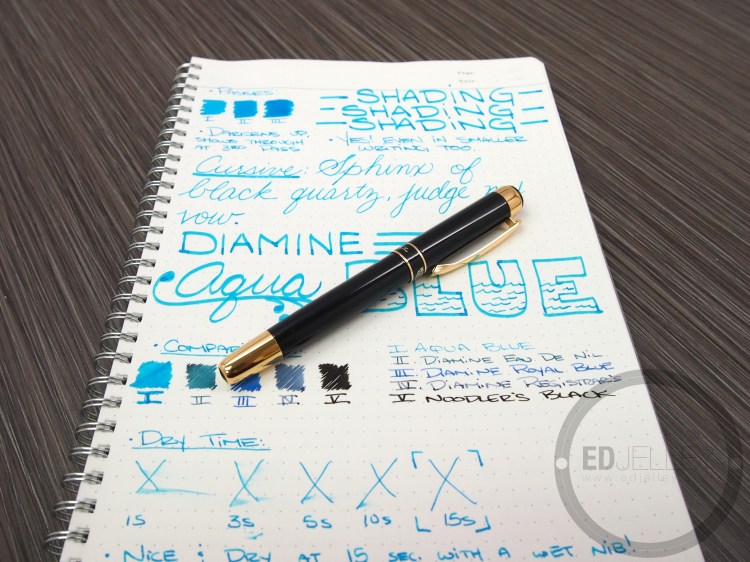 • PASSES
I II III
• DARKENS UP,
SHOWS THROUGH
AT 3RD PASS
- SHADING -
- SHADING -
- SHADING -
• YES! EVEN IN SMALLER
WRITING TOO.
Cursive: Sphinx of
black quartz, judge my
vow.
DIAMINE
Aqua BLUE
I. AQUA BLUE
II. DIAMINE EAU DE NIL
III. DIAMINE ROYAL BLUE
IV. DIAMINE REGISTRARS
V. NOODLER'S BLACK
I II III IV. V.
• DRY TIME:
1S 3s 5s 10s 15s
• NICE! DRY AT 15 SEC. WITH A WET NIB!
EDJELLEY